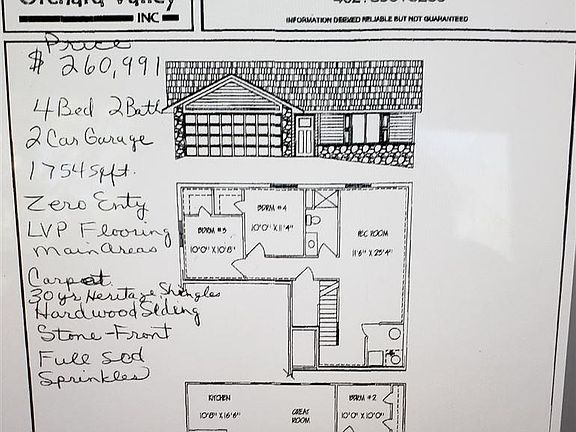 Orchard Valley
INC
INFORMATION DEEMED RELIABLE BUT NOT GUARANTEED
Price
$ 260,991
4 Bed 2 Bath
2 Car Garage
1754 sqft.
Zero Enty
LVP Flooring
main Areas
Carpet
30 yr Heritage Shingles
Hardwood Siding
Stone-Front
Full Sod
Sprinkles
BDRM #4
10'0" X 11'4"
BDRM #3
10'0" X 10'8"
REC ROOM
11'6" X 23'4"
KITCHEN
10'8" X 16'6"
GREAT
ROOM
BDRM #2
10'0" X 10'0"